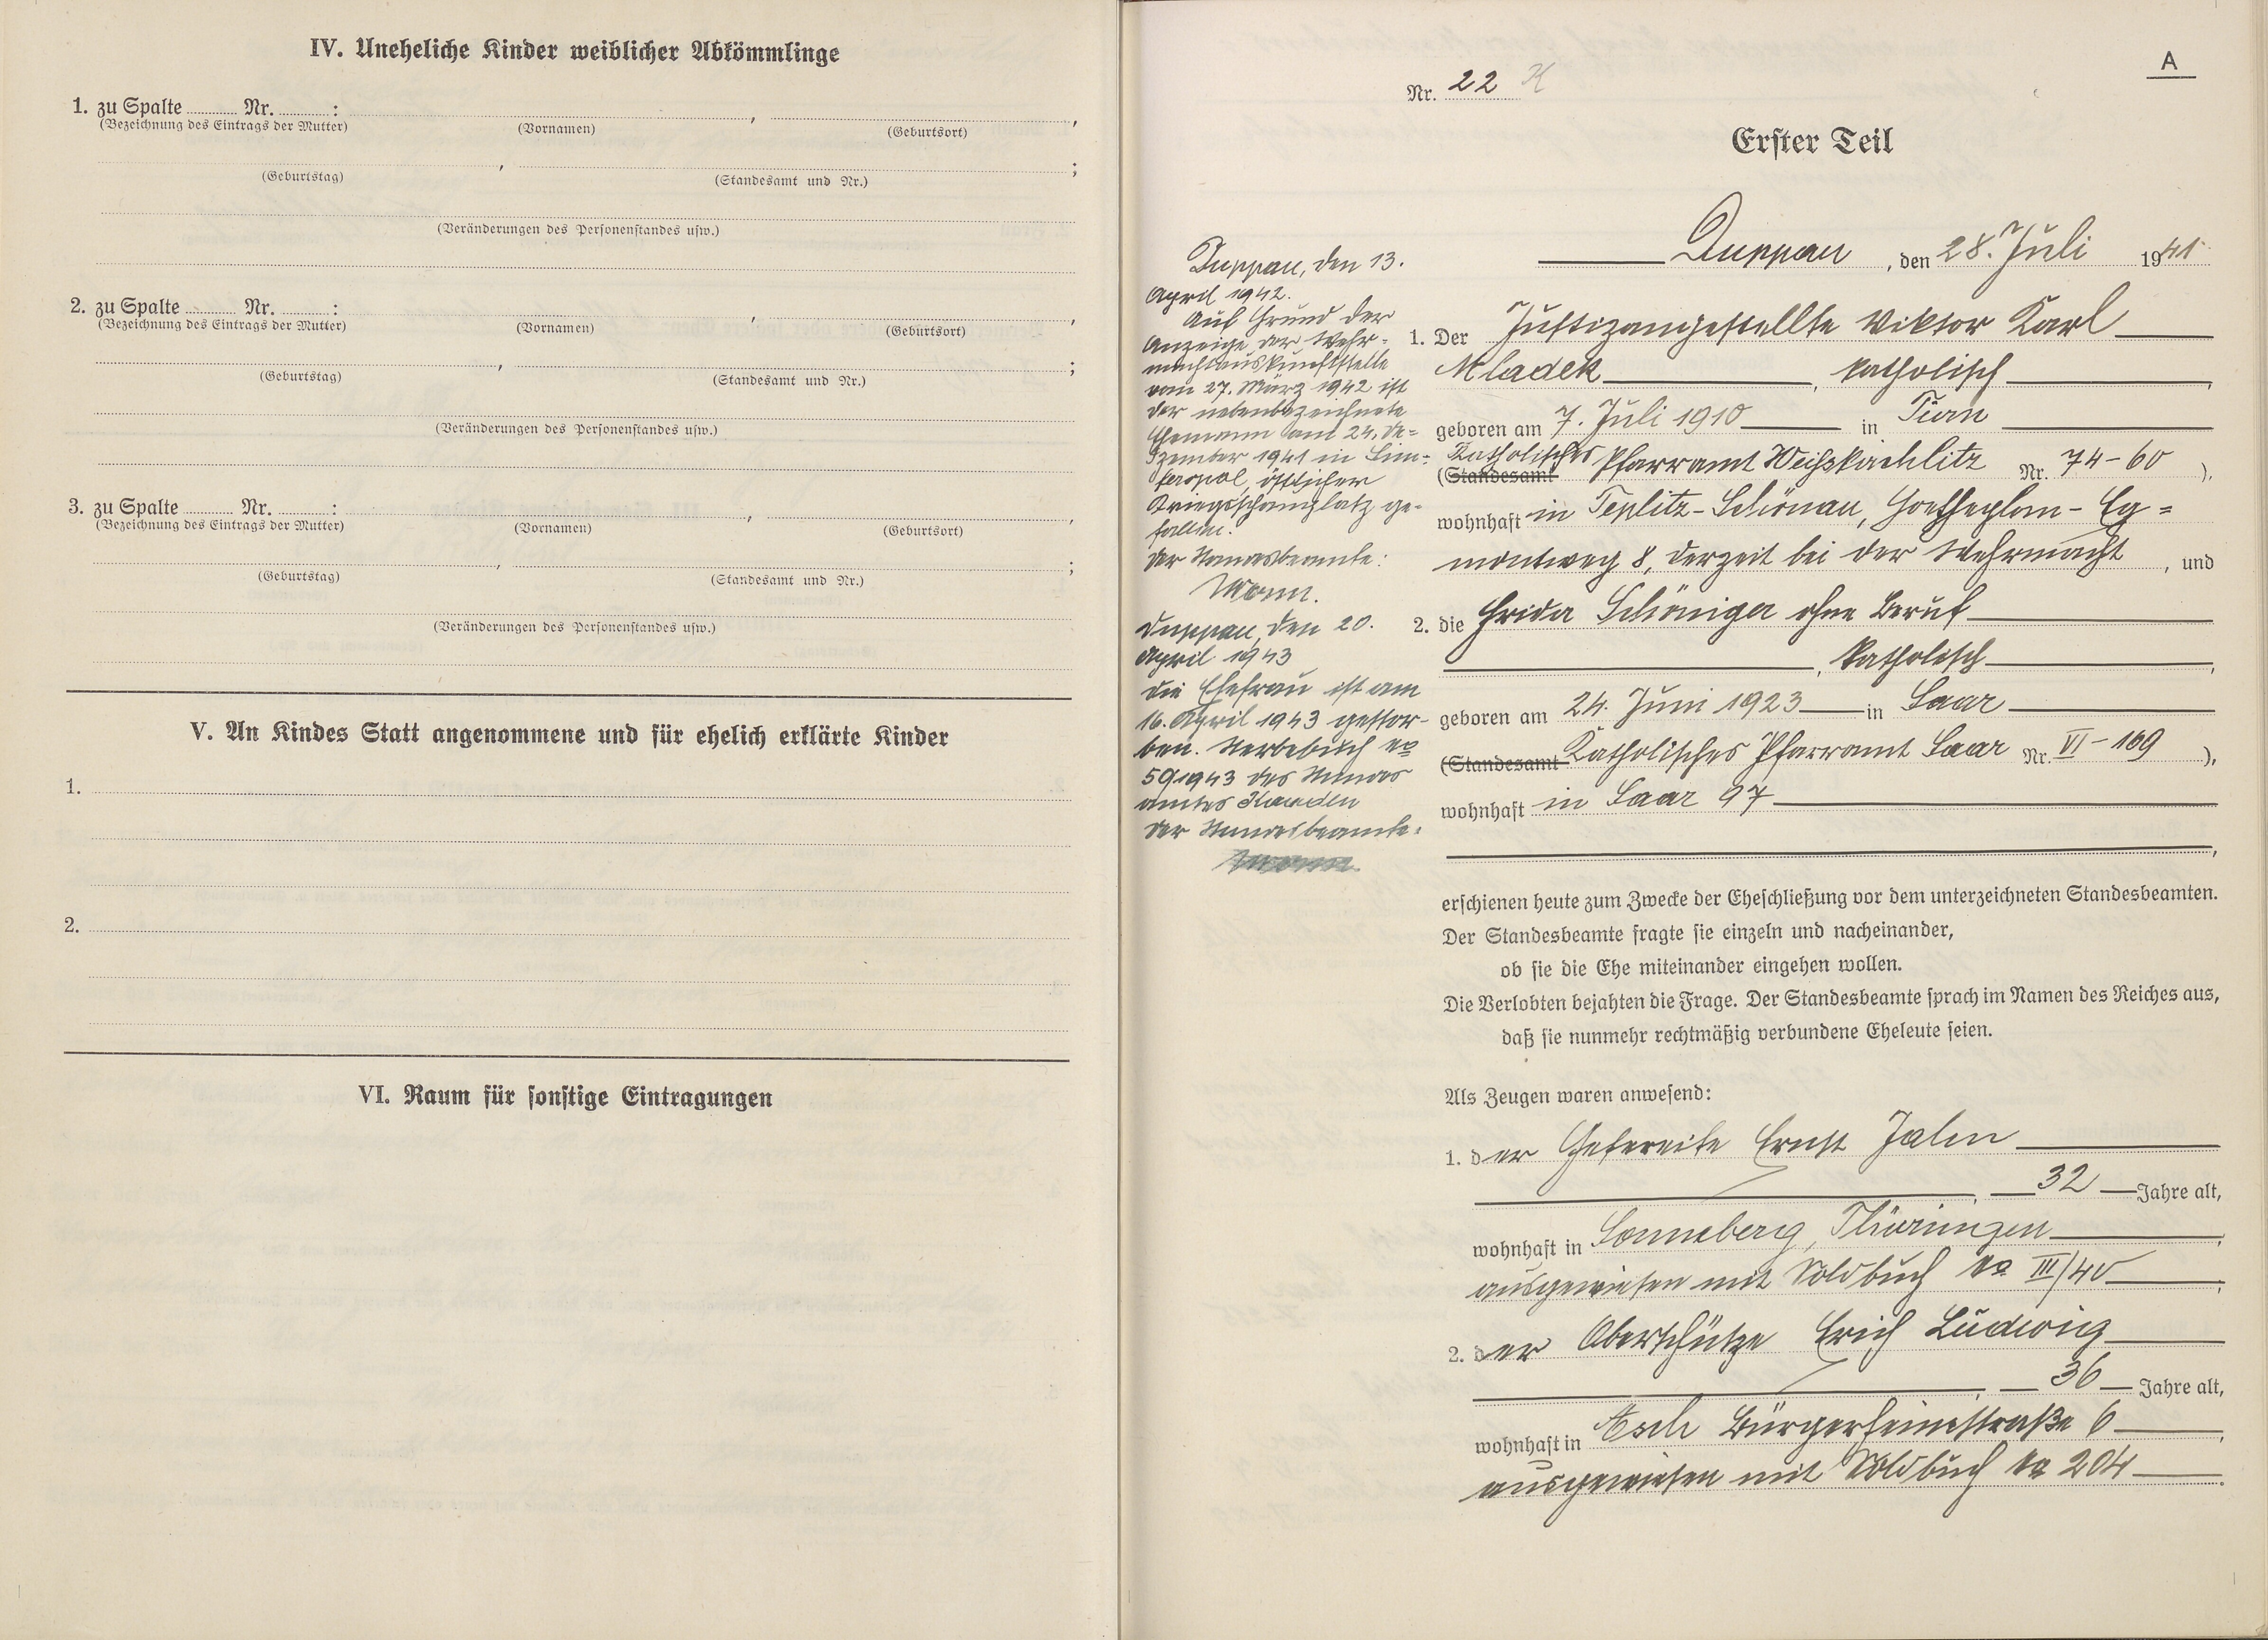 IV. Uneheliche Kinder weiblicher Abkömmlinge
1. zu Spalte ........ Nr. ........ :
(Bezeichnung des Eintrags der Mutter) (Vornamen) , (Geburtsort) ,
(Geburtstag) , (Standesamt und Nr.) ;
(Veränderungen des Personenstandes usw.)
2. zu Spalte ........ Nr. ........ :
(Bezeichnung des Eintrags der Mutter) (Vornamen) , (Geburtsort) ,
(Geburtstag) , (Standesamt und Nr.) ;
(Veränderungen des Personenstandes usw.)
3. zu Spalte ........ Nr. ........ :
(Bezeichnung des Eintrags der Mutter) (Vornamen) , (Geburtsort) ,
(Geburtstag) , (Standesamt und Nr.) ;
(Veränderungen des Personenstandes usw.)
V. An Kindes Statt angenommene und für ehelich erklärte Kinder
1.
2.
VI. Raum für sonstige Eintragungen
A
Nr. 22
Erster Teil
Duppau, den 28. Juli 1941
1. Der Justizangestellte Viktor Karl
Mladek, katholisch,
geboren am 7. Juli 1910 in Turn
Katholisches
(Standesamt Pfarramt Weißkirchlitz Nr. 74-60 ),
wohnhaft in Teplitz-Schönau, Goetheplan-Eg=
montweg 8, derzeit bei der Wehrmacht, und
2. die Frida Schöniger ohne Beruf
, katholisch,
geboren am 24. Juni 1923 in Saar
(Standesamt Katholisches Pfarramt Saar Nr. VI-169 ),
wohnhaft in Saar 97
,
erschienen heute zum Zwecke der Eheschließung vor dem unterzeichneten Standesbeamten.
Der Standesbeamte fragte sie einzeln und nacheinander,
ob sie die Ehe miteinander eingehen wollen.
Die Verlobten bejahten die Frage. Der Standesbeamte sprach im Namen des Reiches aus,
daß sie nunmehr rechtmäßig verbundene Eheleute seien.
Als Zeugen waren anwesend:
1. der Gefreite Ernst Jahn
, 32 Jahre alt,
wohnhaft in Sonneberg, Thüringen,
ausgewiesen mit Soldbuch No III/40.
2. der Oberschütze Erich Ludwig
, 36 Jahre alt,
wohnhaft in Asch Bürgerheimstraße 6,
ausgewiesen mit Soldbuch No 204.
Duppau, den 13.
April 1942.
Auf Grund der
Anzeige der Wehr-
machtauskunftstelle
vom 27. März 1942 ist
der nebenbezeichnete
Ehemann am 24. De=
zember 1941 in
östlicher
Kriegsschauplatz ge-
fallen.
Der Standesbeamte:
Duppau, den 20.
April 1943
Die Ehefrau ist am
16. April 1943 gestor-
ben. Sterbebuch No
59/1943 des Standes
amtes Kaaden
Der Standesbeamte: